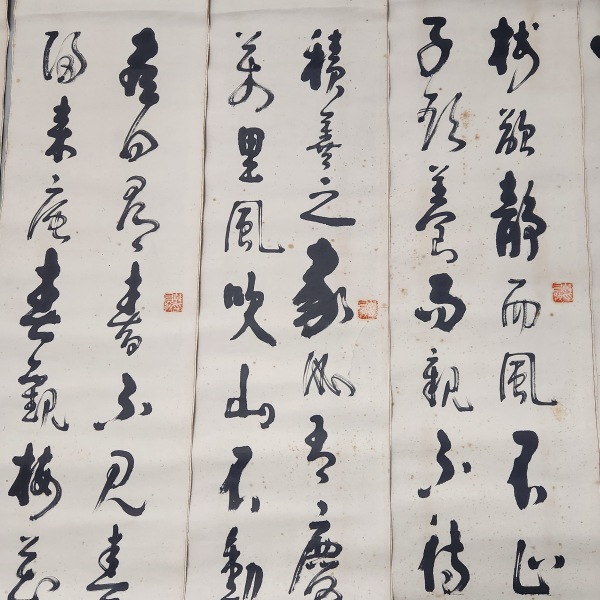 樹欲靜而風不止
子欲養而親不待
積善之家必有慶
萬里風吹山不動
日尋春不見春
歸來庵春觀梅花